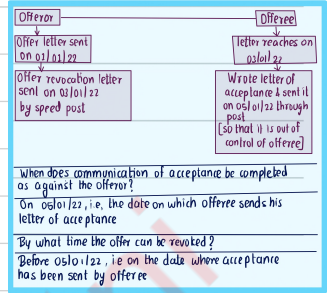 Offeror
Offeree
Offer letter sent
on 01/01/22
letter reaches on
03/01/22
Offer revocation letter
sent on 03/01/22
by speed post
Wrote letter of
acceptance & sent it
on 05/01/22 through
post
[so that it is out of
control of offeree]
When does communication of acceptance be completed
as against the offeror?
On 05/01/22, i.e, the date on which offeree sends his
letter of acceptance
By what time the offer can be revoked?
Before 05/01/22, ie on the date where acceptance
has been sent by offeree